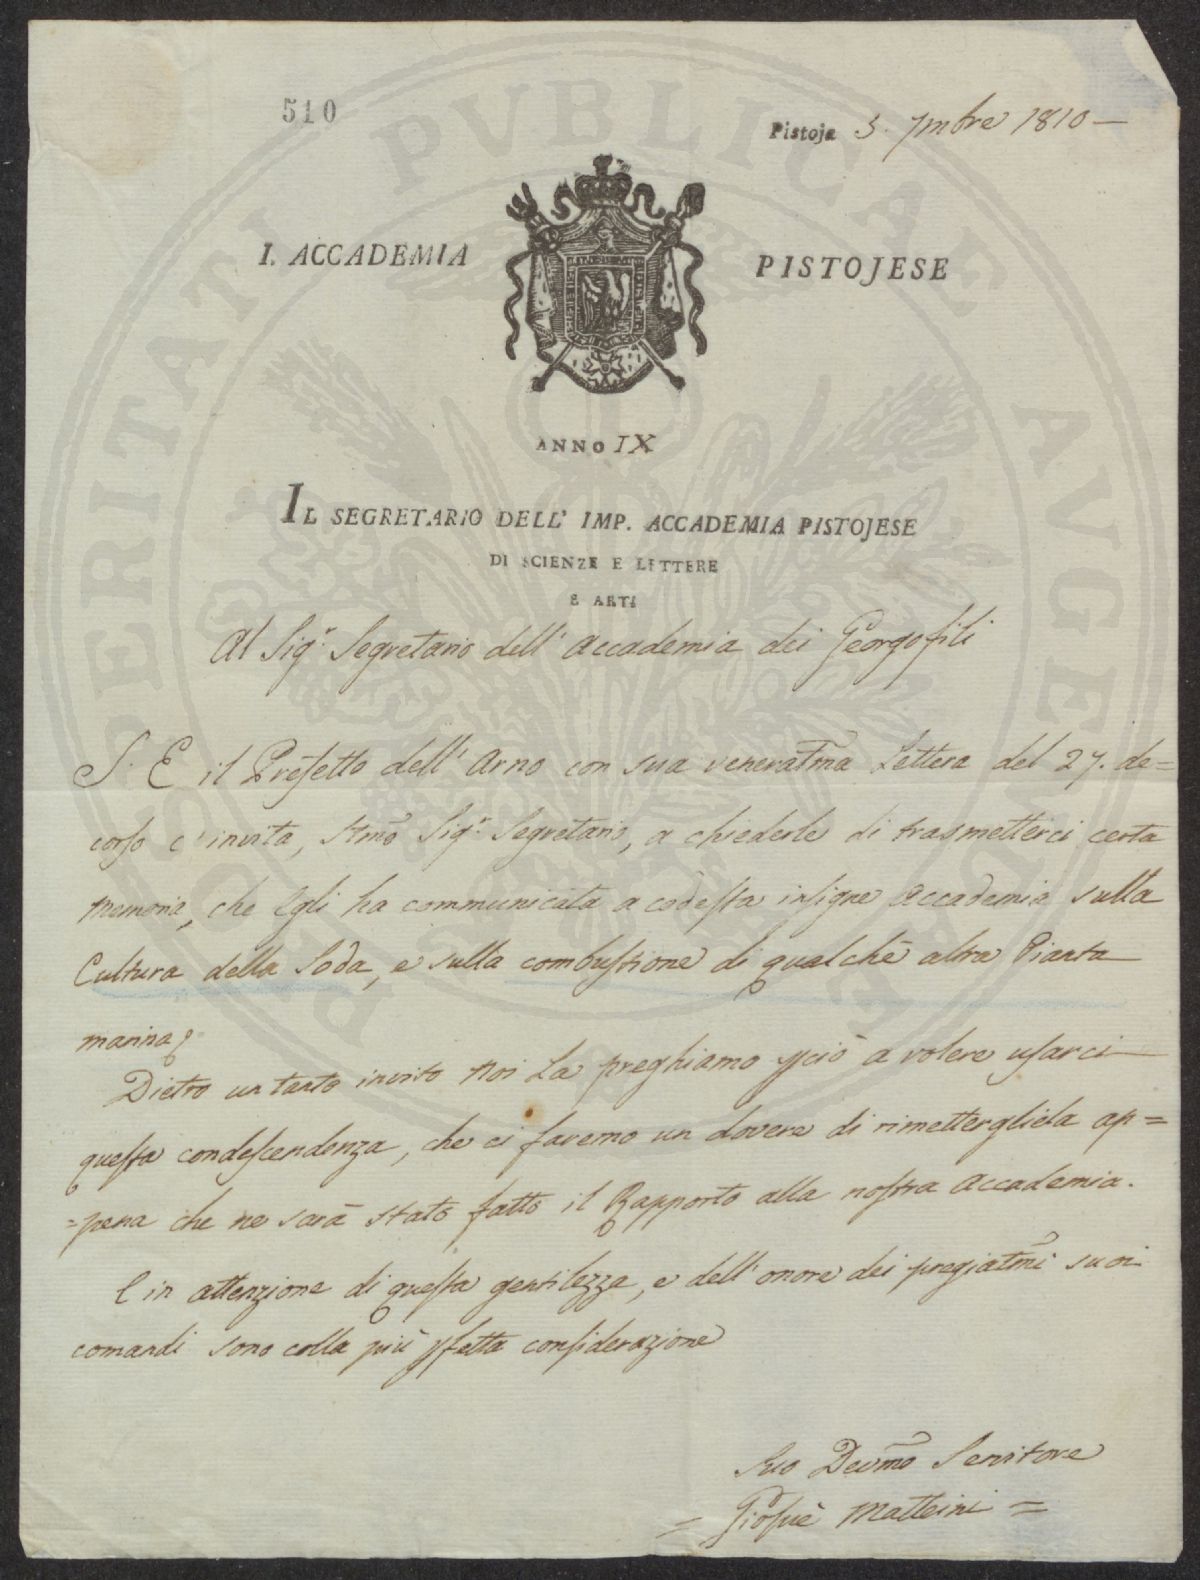 510
Pistoja 3. 7mbre 1810 —
I. ACCADEMIA PISTOJESE
ANNO IX
IL SEGRETARIO DELL' IMP. ACCADEMIA PISTOJESE
DI SCIENZE E LETTERE
E ARTI
Al Sigr. Segretario dell' Accademia dei Georgofili
S. E il Prefetto dell' Arno con sua veneratma Lettera del 27. de=
corso c'invita, Stmo Sigr. Segretario, a chiederle di trasmetterci certa
memoria, che Egli ha communicata a codesta insigne Accademia sulla
Cultura della Soda, e sulla combustione di qualche altra Pianta
marina.
Dietro un tanto invito Noi La preghiamo pciò a volere usarci
questa condescendenza, che ci faremo un dovere di rimettergliela ap=
=pena che ne sarà stato fatto il Rapporto alla nostra Accademia.
E in attenzione di questa gentilezza, e dell' onore dei pregiatmi suoi
comandi sono colla più pfetta considerazione
Suo Devmo Servitore
= Giosuè Matteini =
PROSPERITATI PVBLICAE AVGENDAE